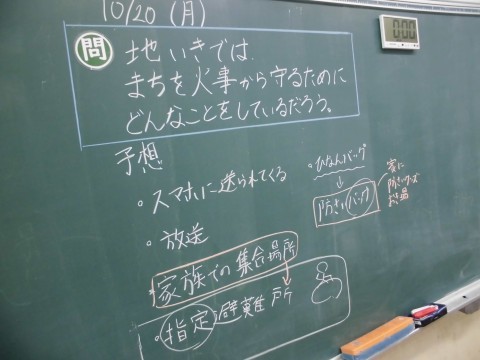 10/20 (月)
0:00
問 地いきでは、
まちを火事から守るために
どんなことをしているだろう。
予想
・スマホに送られてくる
・放送
・家族での集合場所
・指定避難所
・ひなんバッグ
↓
防さいバッグ
家に
防さいグッズ